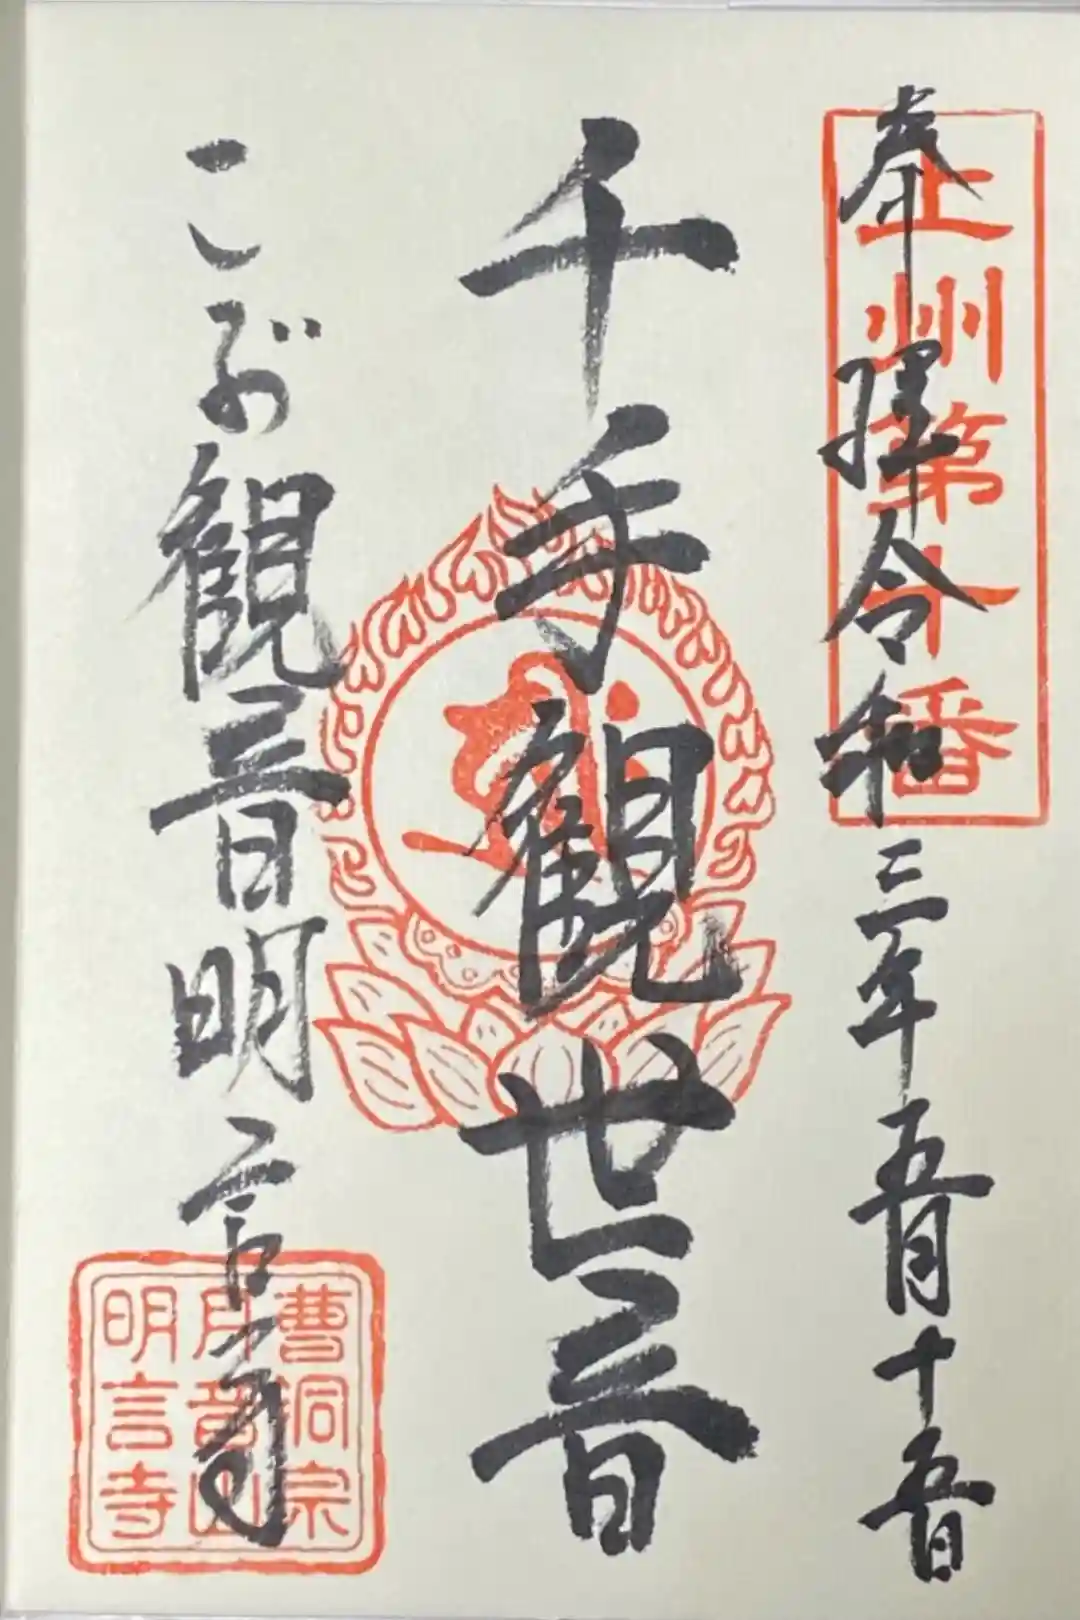 奉拝 令和三年五月十五日
上州第十番
千手観世音
こぶ観音 明言寺
曹洞宗
月音山
明言寺